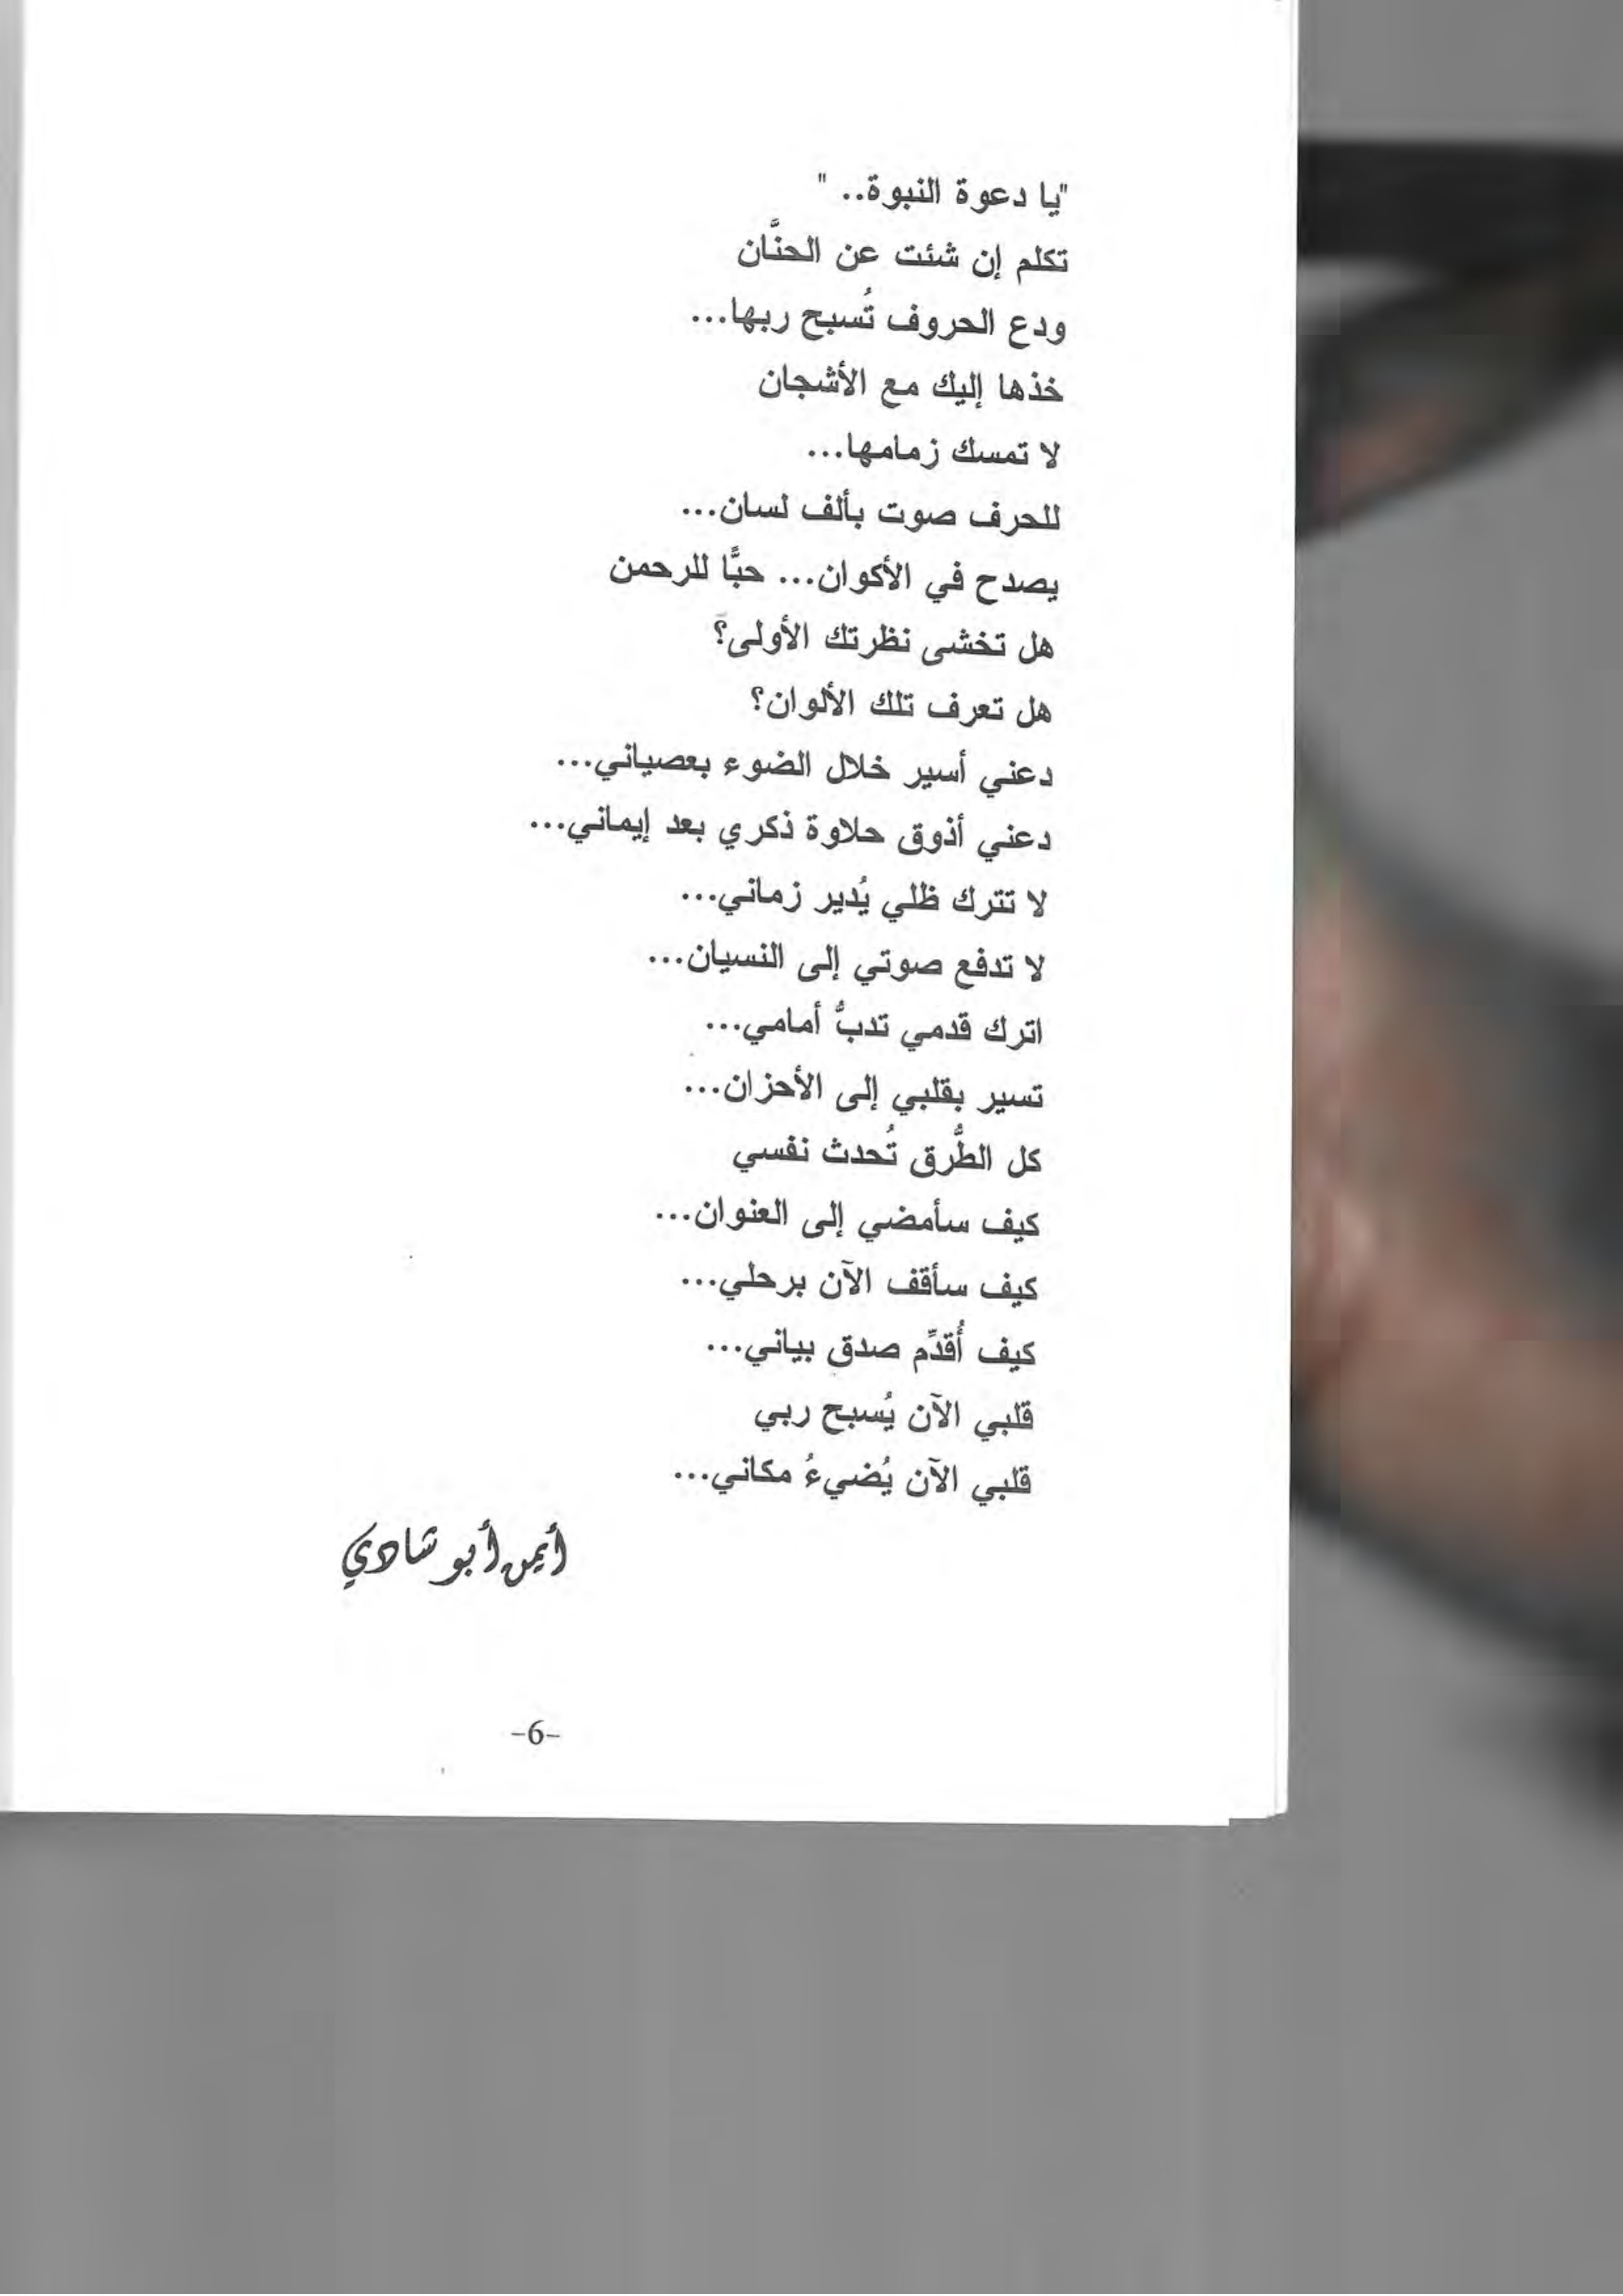 "يا دعوة النبوة.. "
تكلم إن شئت عن الحنَّان
ودع الحروف تُسبح ربها...
خذها إليك مع الأشجان
لا تمسك زمامها...
للحرف صوت بألف لسان...
يصدح في الأكوان... حبًّا للرحمن
هل تخشى نظرتك الأولى؟
هل تعرف تلك الألوان؟
دعني أسير خلال الضوء بعصياني...
دعني أذوق حلاوة ذكري بعد إيماني...
لا تترك ظلي يُدير زماني...
لا تدفع صوتي إلى النسيان...
اترك قدمي تدبُّ أمامي...
تسير بقلبي إلى الأحزان...
كل الطُّرق تُحدث نفسي
كيف سأمضي إلى العنوان...
كيف سأقف الآن برحلي...
كيف أُقدِّم صدق بياني...
قلبي الآن يُسبح ربي
قلبي الآن يُضيءُ مكاني...
أيمن أبو شادي
-6-